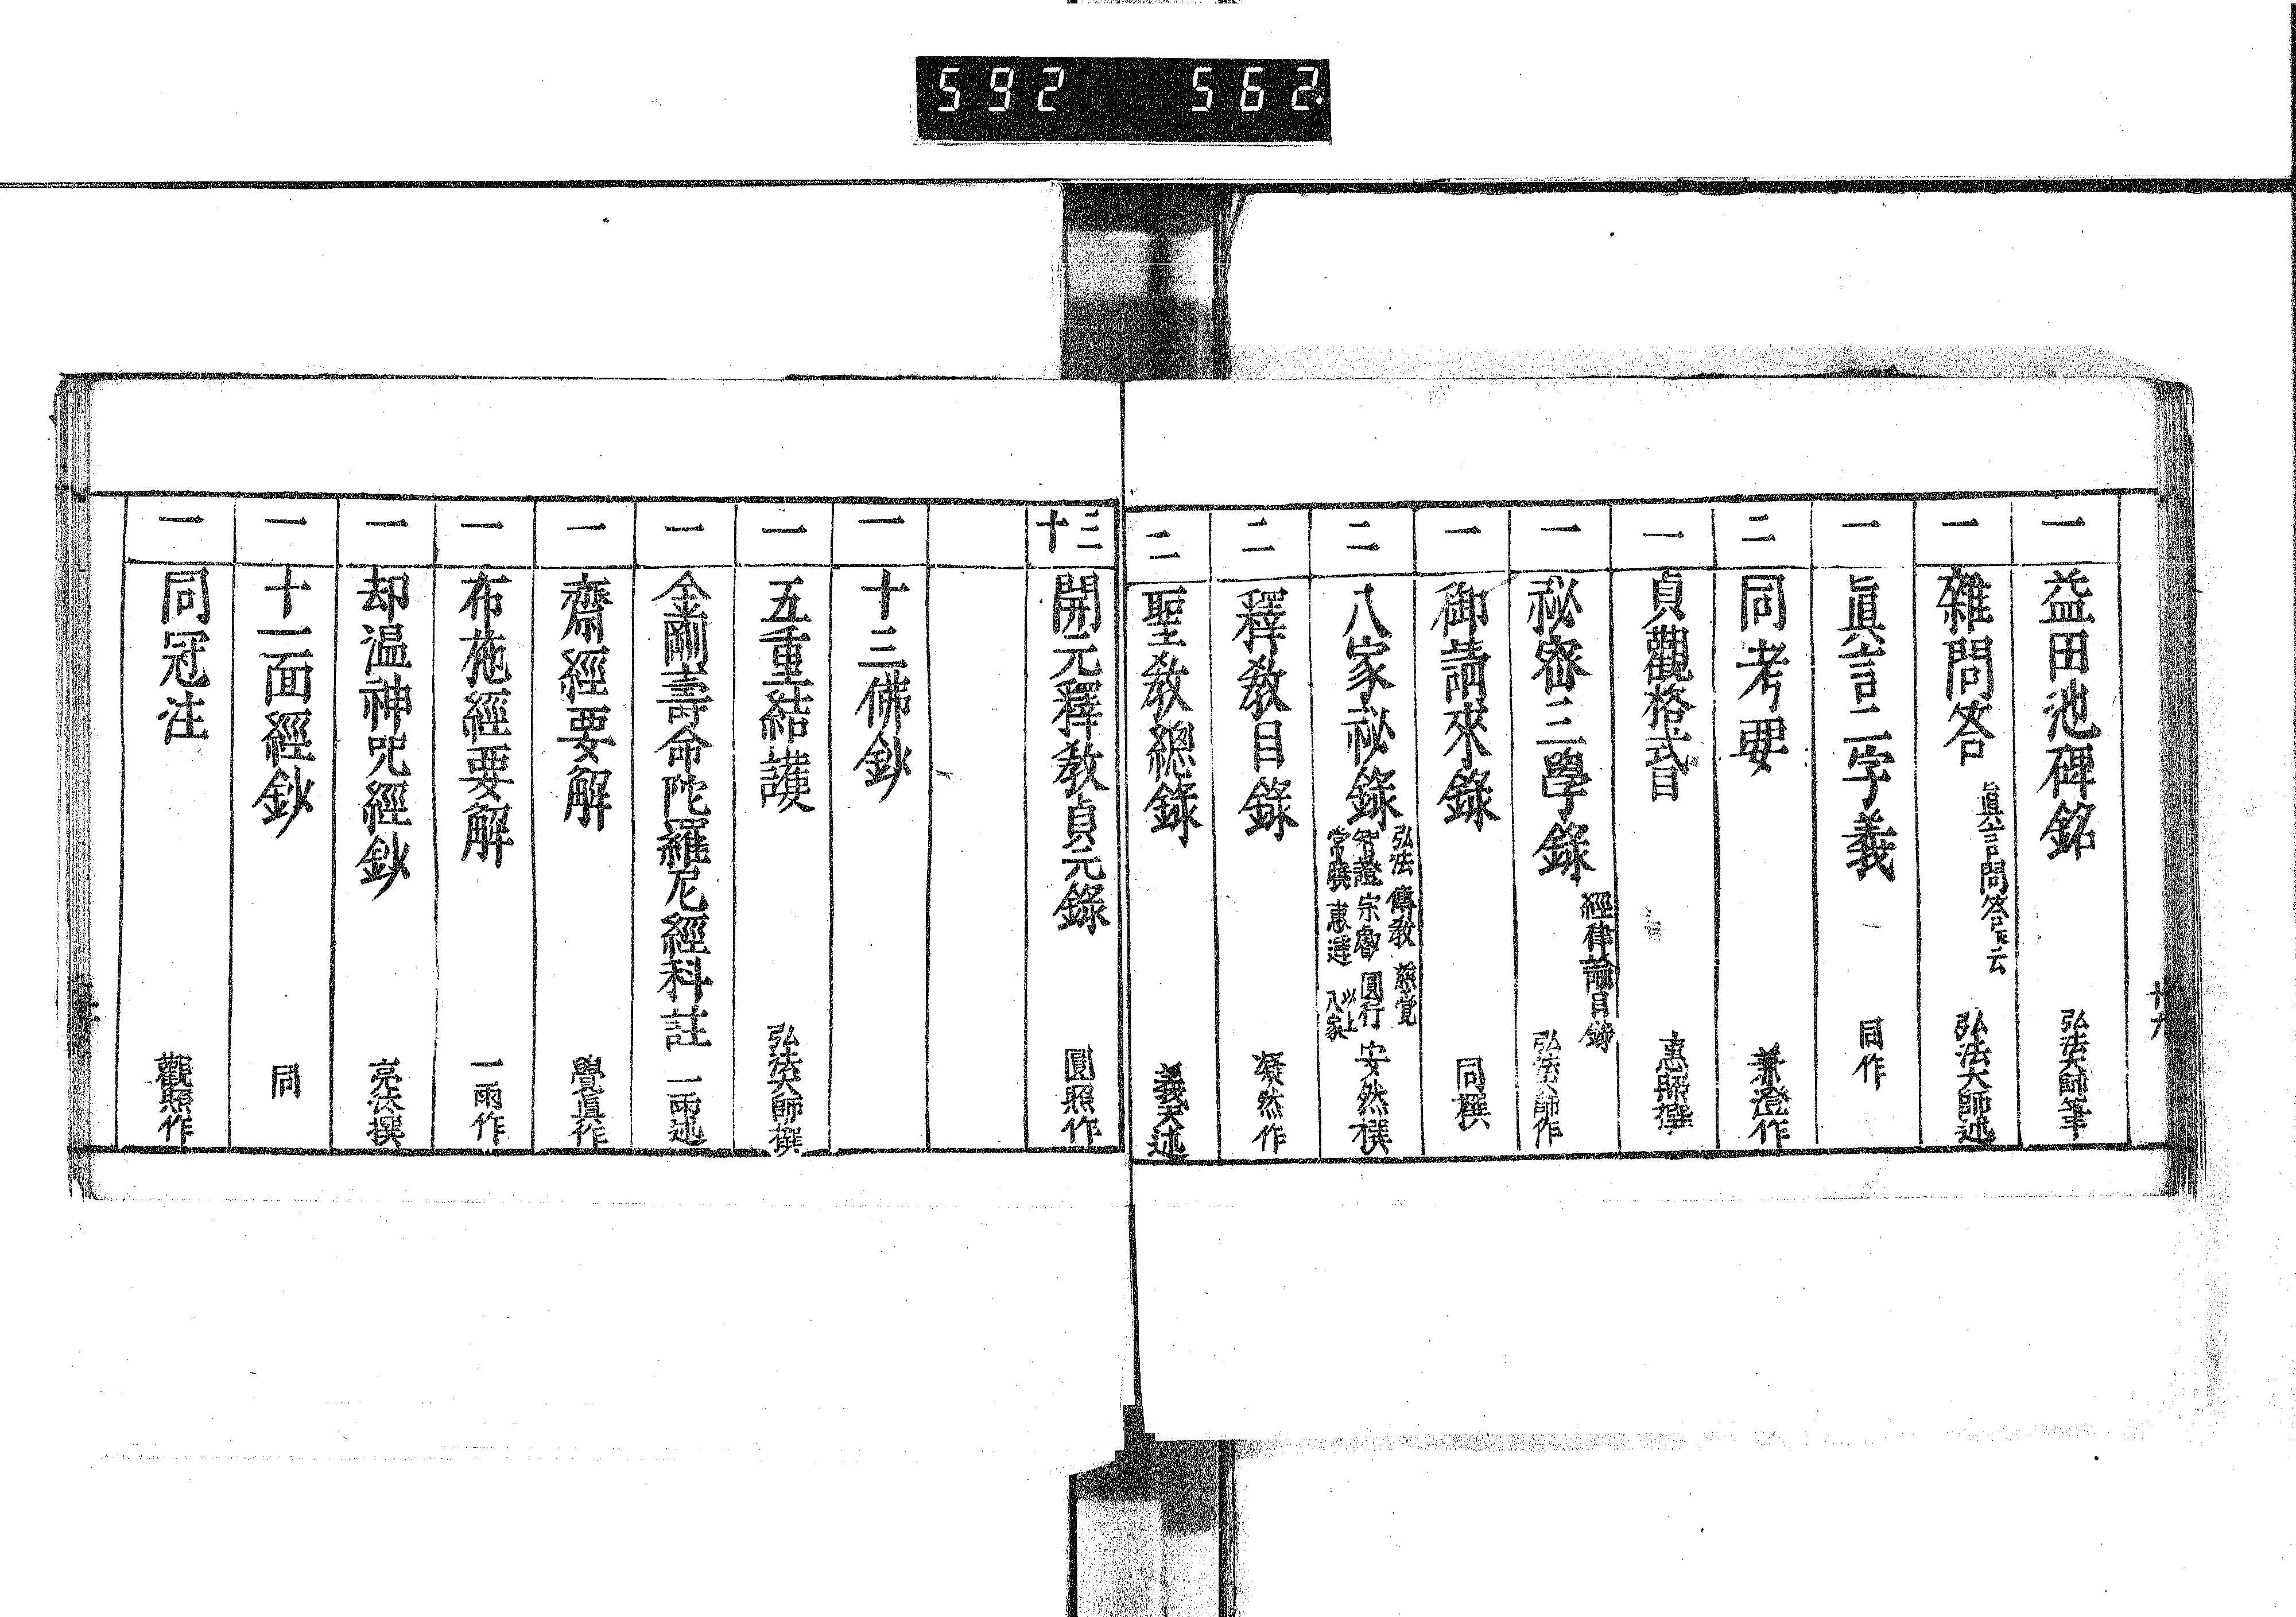 592 562
廿九
一 益田池碑銘 弘法大師筆
一 雜問答 眞言問答𪜈云 弘法大師述
一 眞言二字義 同作
二 同考要 兼澄作
一 貞觀格式目 惠照撰
一 祕密三學錄 經律論目錄 弘法大師作
一 御請來錄 同撰
二 八家祕錄 弘法 傳教 慈覺 智證 宗叡 圓行 常曉 惠運 以上八家 安然撰
二 釋教目錄 凝然作
二 聖教總錄 義天述
三十 開元釋教貞元錄 圓照作
一 十三佛鈔
一 五重結護 弘法大師撰
一 金剛壽命陀羅尼經科註 一雨述
一 齋經要解 覺眞作
一 布施經要解 一雨作
一 却温神咒經鈔 亮汰撰
一 十一面經鈔 同
一 同冠注 觀照作